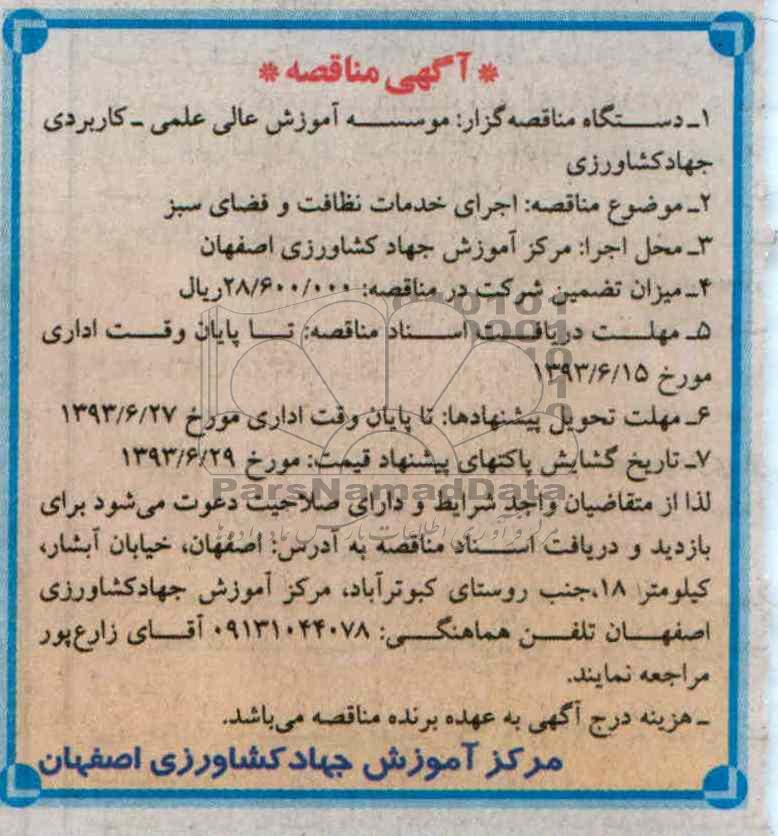 * آگهی مناقصه *
۱ـ دستگاه مناقصه‌گزار: موسسه آموزش عالی علمی ـ کاربردی
جهادکشاورزی
۲ـ موضوع مناقصه: اجرای خدمات نظافت و فضای سبز
۳ـ محل اجرا: مرکز آموزش جهاد کشاورزی اصفهان
۴ـ میزان تضمین شرکت در مناقصه: ۲۸/۶۰۰/۰۰۰ریال
۵ـ مهلت دریافت اسناد مناقصه: تا پایان وقت اداری
مورخ ۱۳۹۳/۶/۱۵
۶ـ مهلت تحویل پیشنهادها: تا پایان وقت اداری مورخ ۱۳۹۳/۶/۲۷
۷ـ تاریخ گشایش پاکتهای پیشنهاد قیمت: مورخ ۱۳۹۳/۶/۲۹
ParsNamadData
لذا از متقاضیان واجد شرایط و دارای صلاحیت دعوت می‌شود برای
بازدید و دریافت اسناد مناقصه به آدرس: اصفهان، خیابان آبشار،
کیلومتر ۱۸،جنب روستای کبوترآباد، مرکز آموزش جهادکشاورزی
اصفهان تلفن هماهنگی: ۰۹۱۳۱۰۴۴۰۷۸ آقای زارع‌پور
مراجعه نمایند.
ـ هزینه درج آگهی به عهده برنده مناقصه می‌باشد.
مرکز آموزش جهادکشاورزی اصفهان